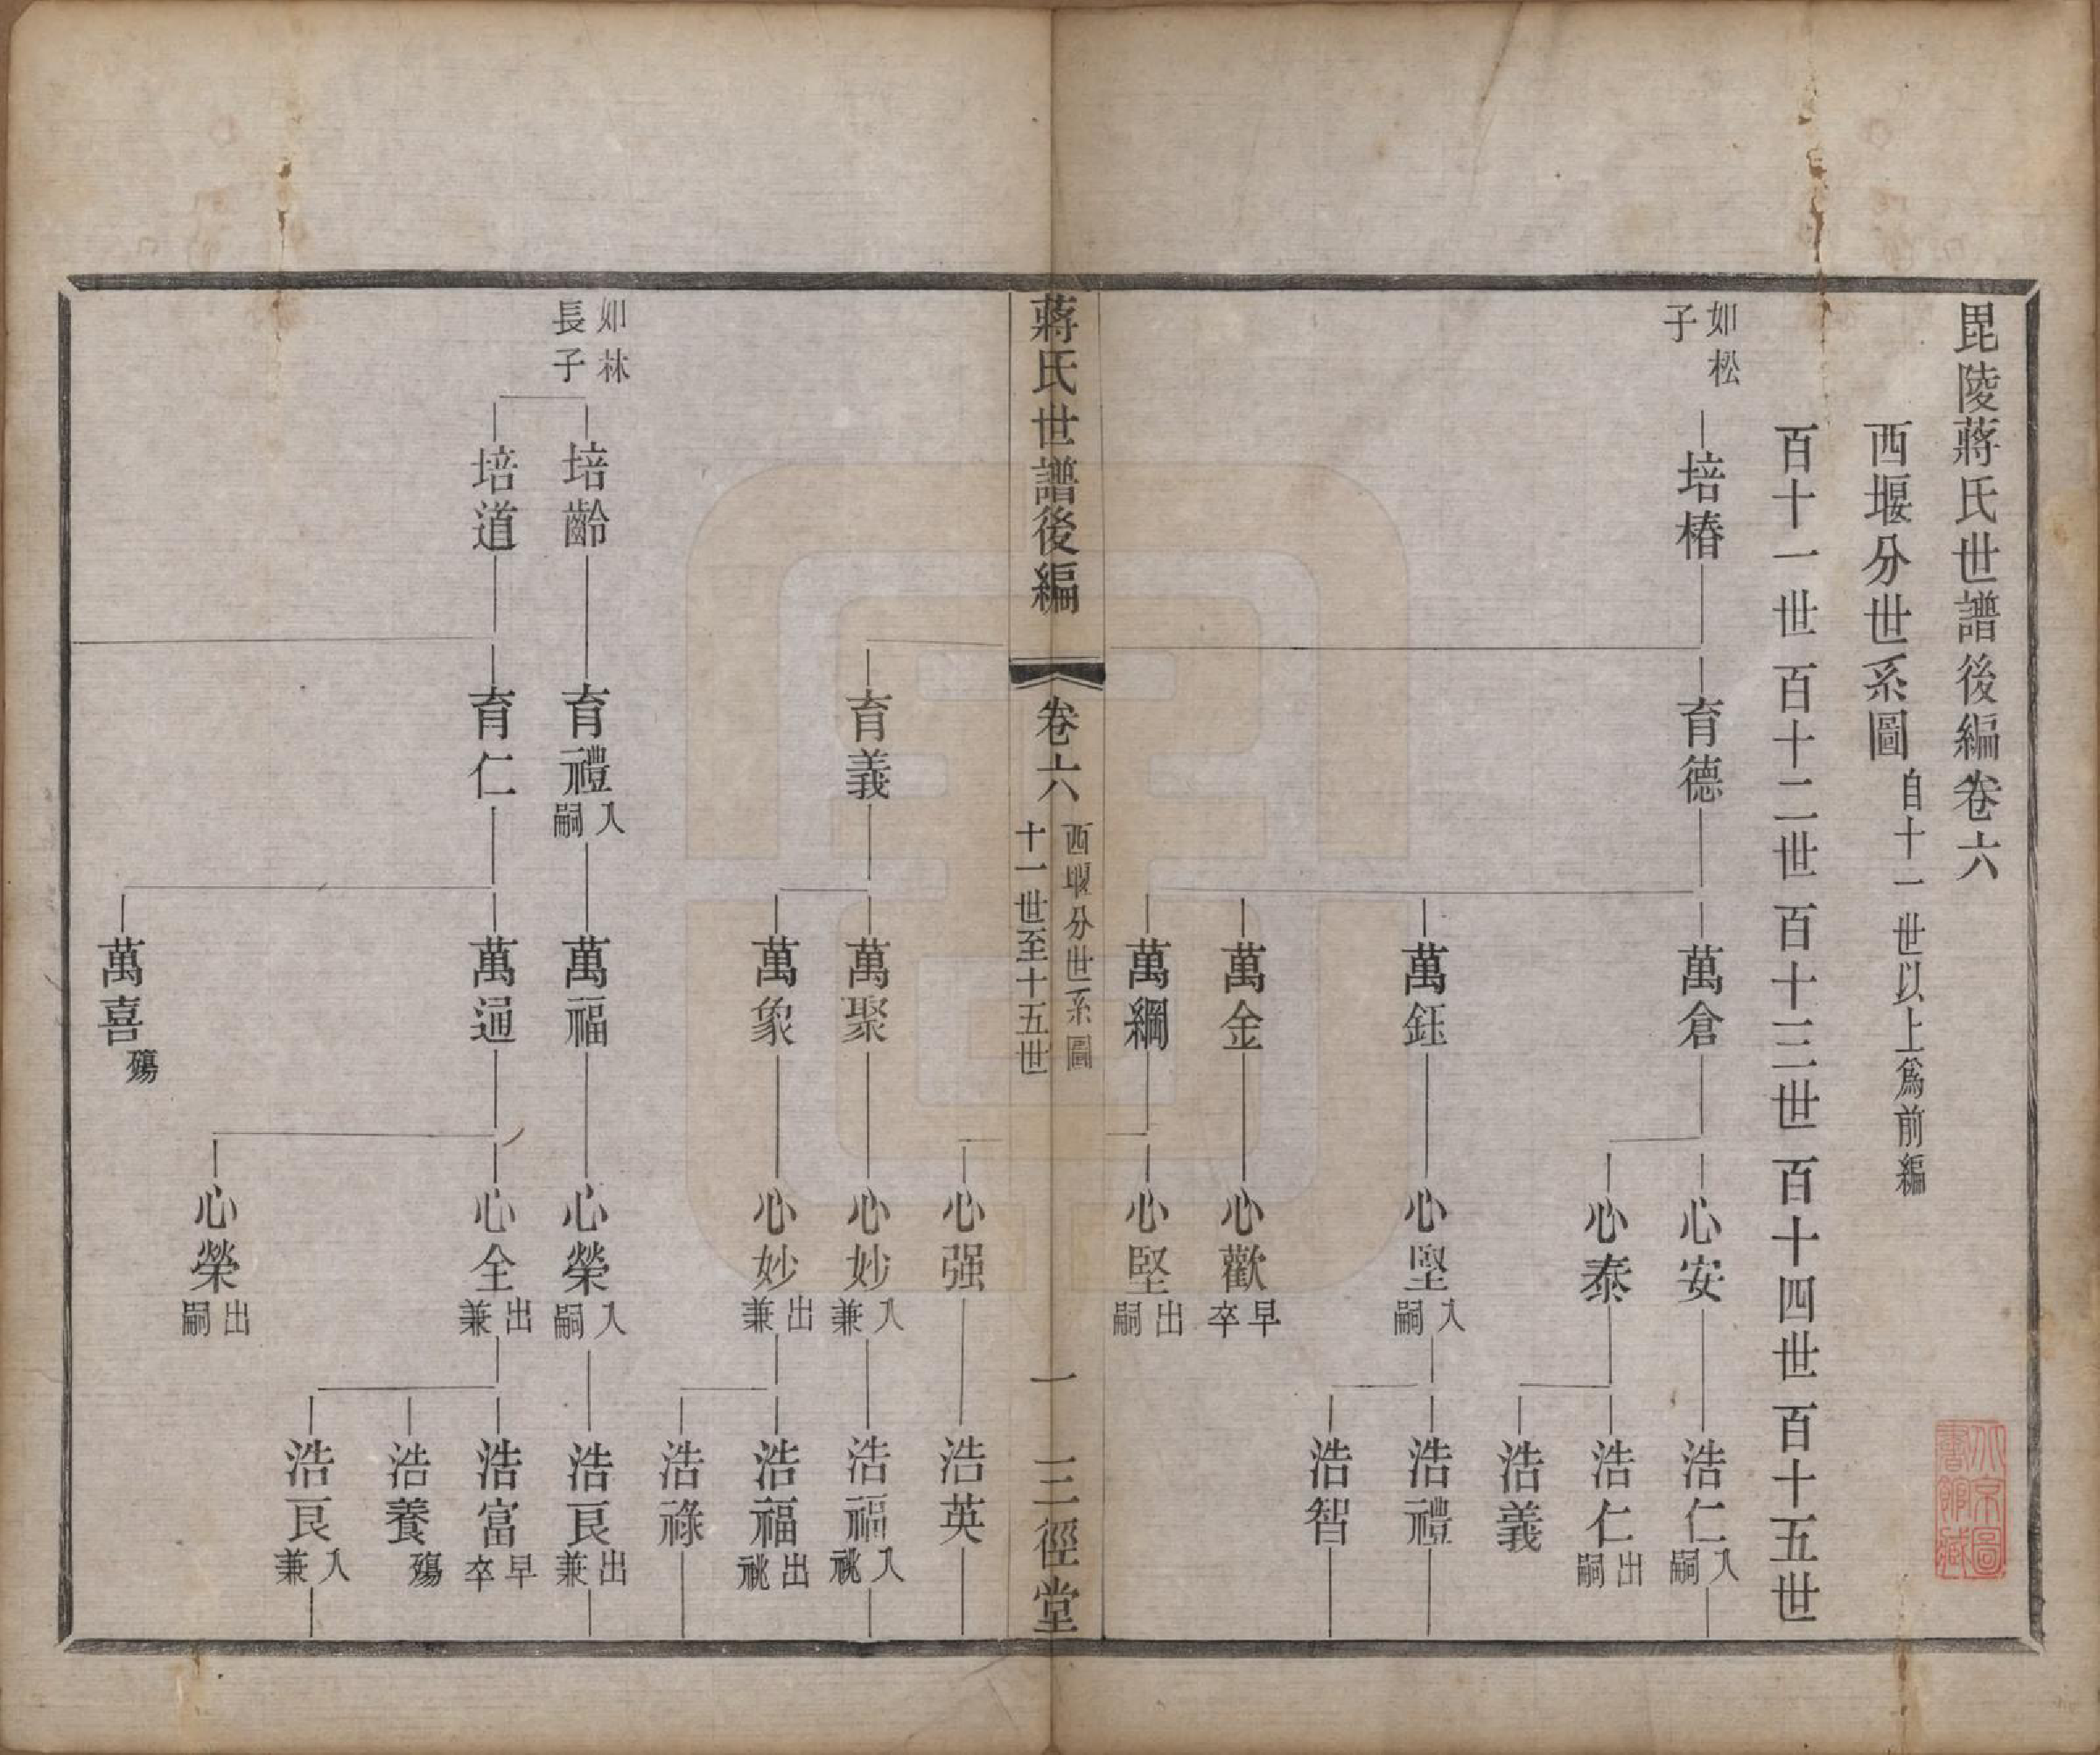 毘陵蔣氏世譜後編卷六
西堰分世系圖 自十一世以上爲前編
百十一世 百十二世 百十三世 百十四世 百十五世
如松子 培椿 育德 萬倉 心安 浩仁 入嗣
心泰 浩仁 出嗣
浩義
萬鈺 心堅 入嗣 浩禮
浩智
萬金 心歡 早卒
萬綱 心堅 出嗣
蔣氏世譜後編 卷六 西堰分世系圖 十一世至十五世 一 三徑堂
心强 浩英
育義 萬聚 心妙 入兼 浩福 入祧
萬象 心妙 出兼 浩福 出祧
浩祿
如林長子 培齡 育禮 入嗣 萬福 心榮 入嗣 浩良 出兼
培道 育仁 萬通 心全 出兼 浩富 早卒
浩養 殤
浩良 入兼
心榮 出嗣
萬喜 殤
北京圖書館藏